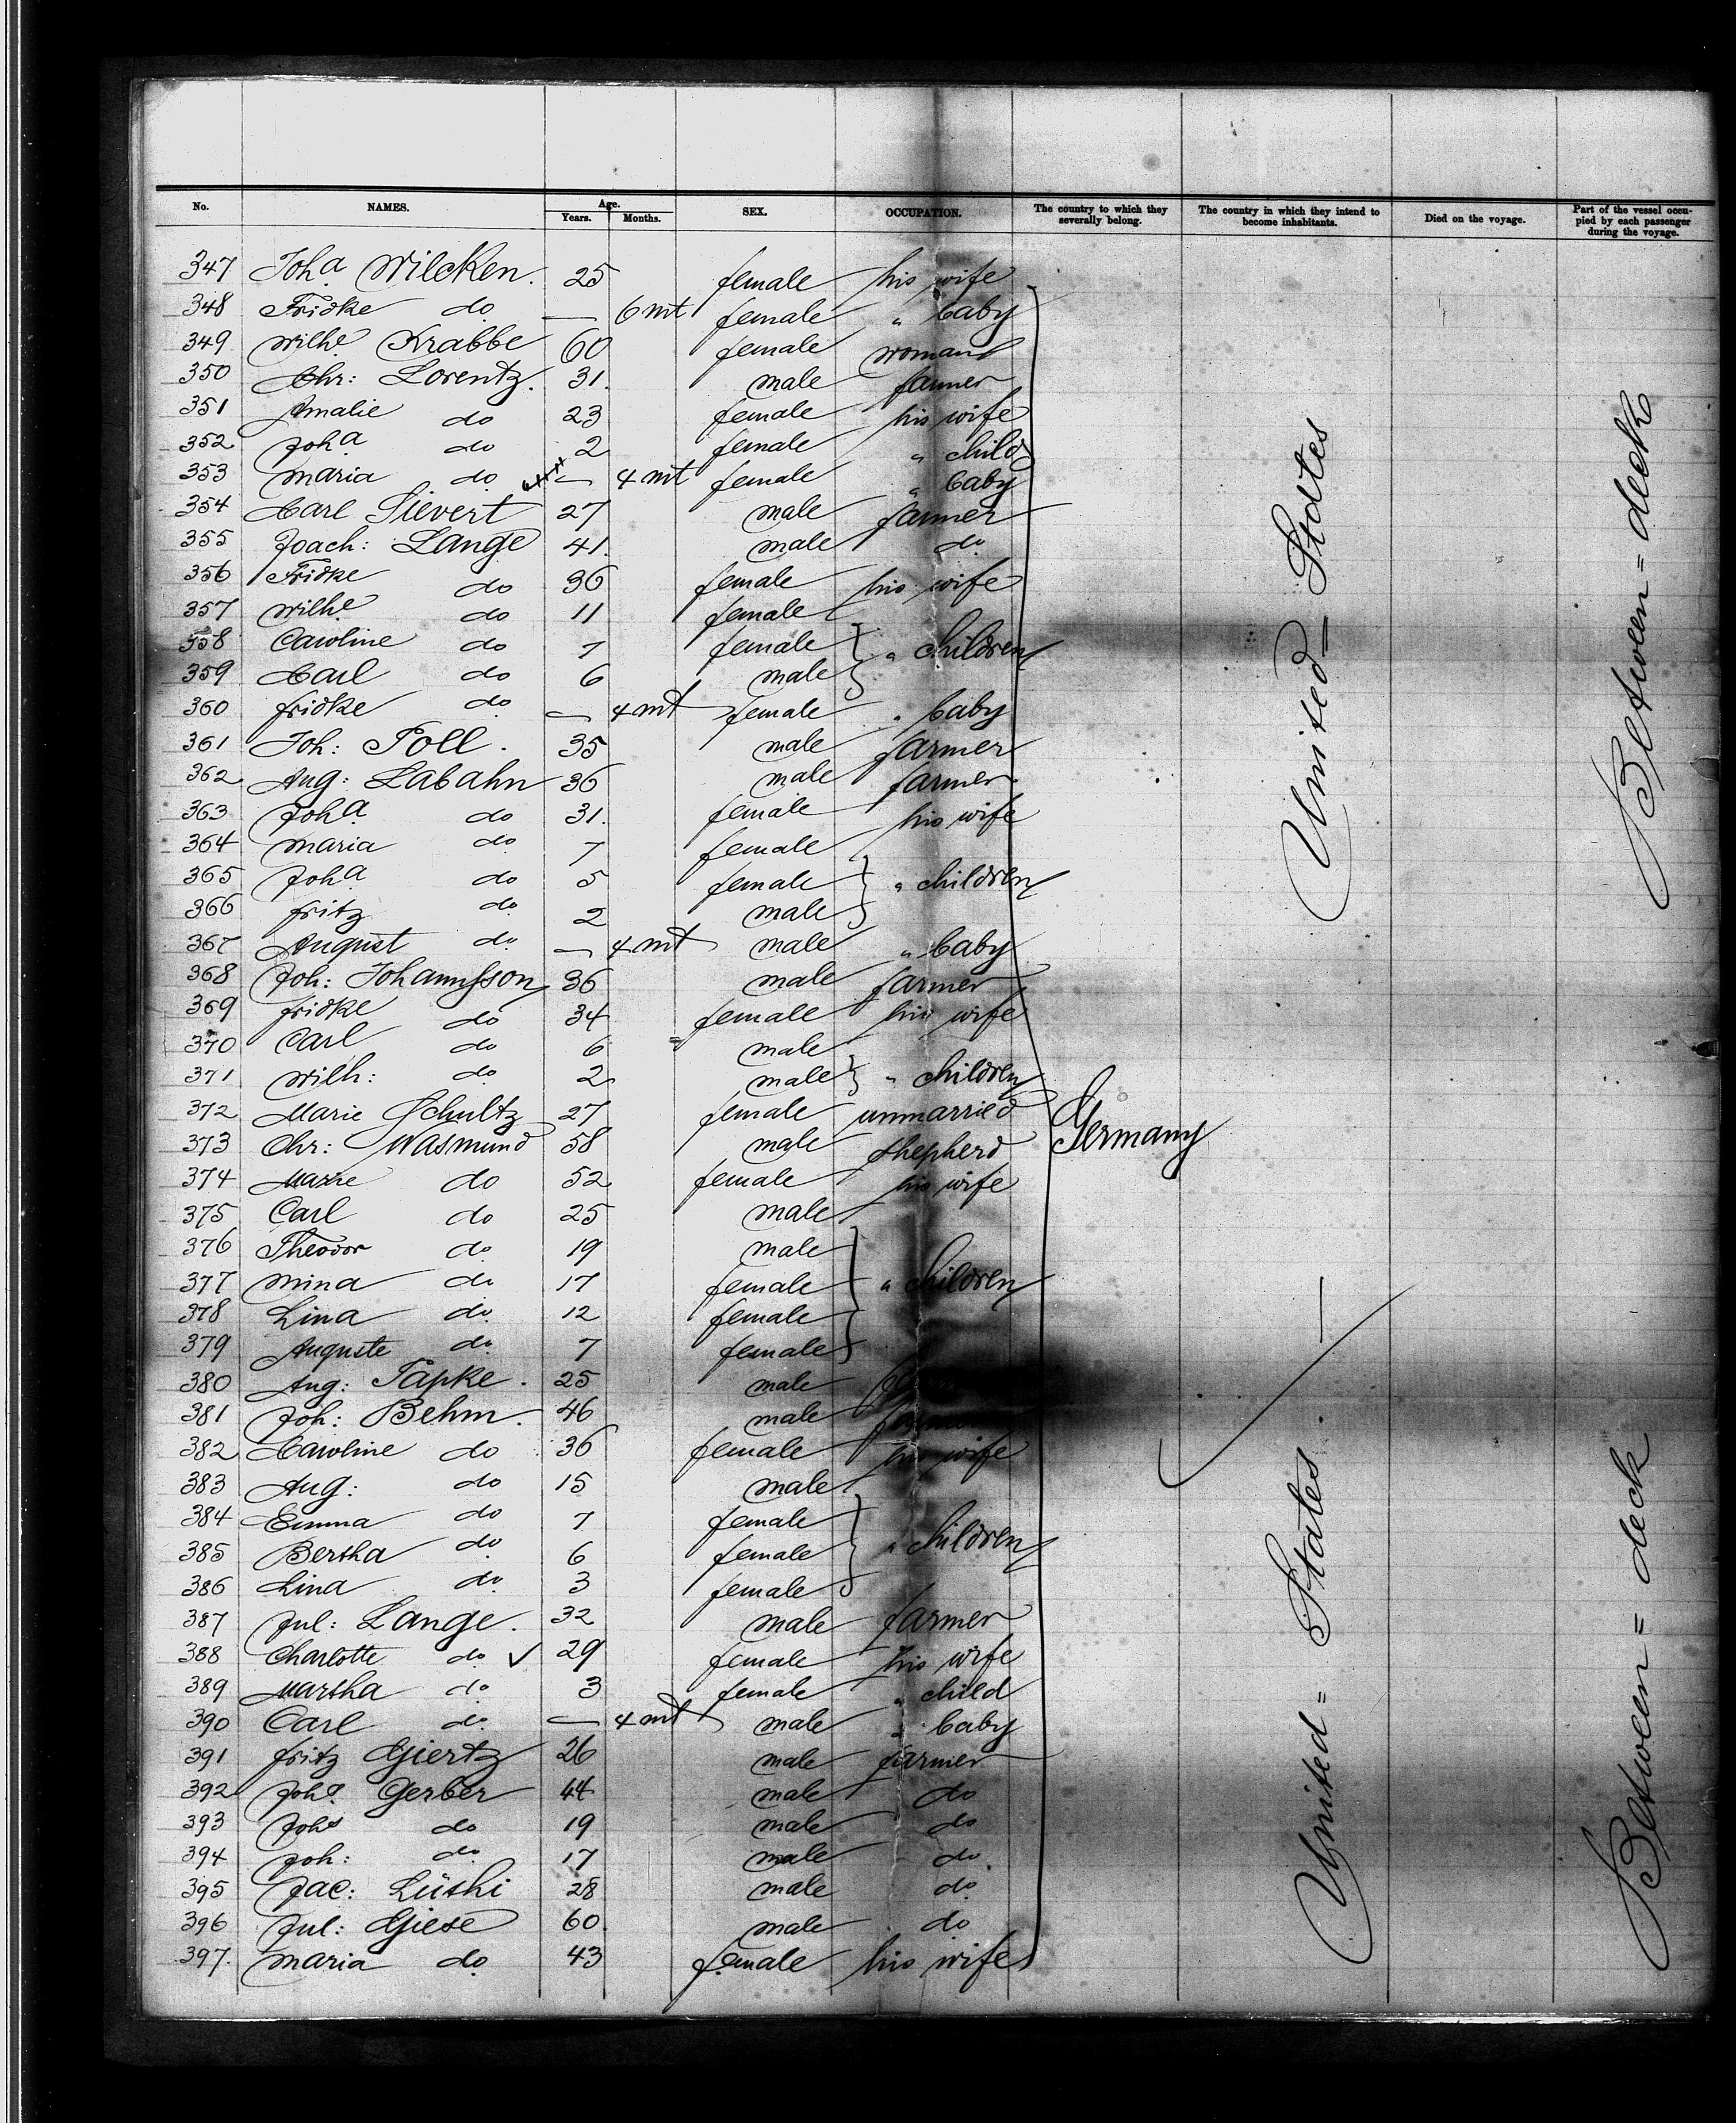 No. NAMES. Age. Years. Months. SEX. OCCUPATION. The country to which they severally belong. The country in which they intend to become inhabitants. Died on the voyage. Part of the vessel occupied by each passenger during the voyage.
347 Joha Wilcken. 25 female his wife
348 Fridke do — 6 mt female " baby
349 Wilhe Krabbe 60 female woman
350 Chr: Lorentz. 31. male farmer
351 Amalie do 23 female his wife
352 Joha do 2 female " child
353 Maria do — 4 mt female " baby
354 Carl Sievert 27 male farmer
355 Joach: Lange 41. male do
356 Fridke do 36 female his wife
357 Wilhe do 11 female
358 Caroline do 7 female " children
359 Carl do 6 male
360 Fridke do — 4 mt female " baby
361 Joh: Poll. 35 male farmer
362 Aug: Labahn 36 male farmer
363 Joha do 31. female his wife
364 Maria do 7 female
365 Joha do 5 female " children
366 Fritz do 2 male
367 August do — 4 mt male " baby
368 Joh: Johannsson 36 male farmer
369 Fridke do 34 female his wife
370 Carl do 6 male
371 Wilh: do 2 male " children
372 Marie Schultz 27 female unmarried
373 Chr: Wasmund 58 male shepherd
374 Marie do 52 female his wife
375 Carl do 25 male
376 Theodor do 19 male
377 Mina do 17 female " children
378 Lina do 12 female
379 Auguste do 7 female
380 Aug: Papke. 25 male
381 Joh: Behm. 46 male
382 Caroline do 36 female his wife
383 Aug: do 15 male
384 Emma do 7 female
385 Bertha do 6 female " children
386 Lina do 3 female
387 Jul: Lange. 32 male farmer
388 Charlotte do ✓ 29 female his wife
389 Martha do 3 female " child
390 Carl do — 4 mt male " baby
391 Fritz Giertz 26 male farmer
392 Joh: Gerber 44 male do
393 Johs do 19 male do
394 Joh: do 17 male do
395 Jac: Lüthi 28 male do
396 Jul: Giese 60. male do
397. Maria do 43 female his wife
Germany
United = States
United = States.
Between = deck
Between = deck